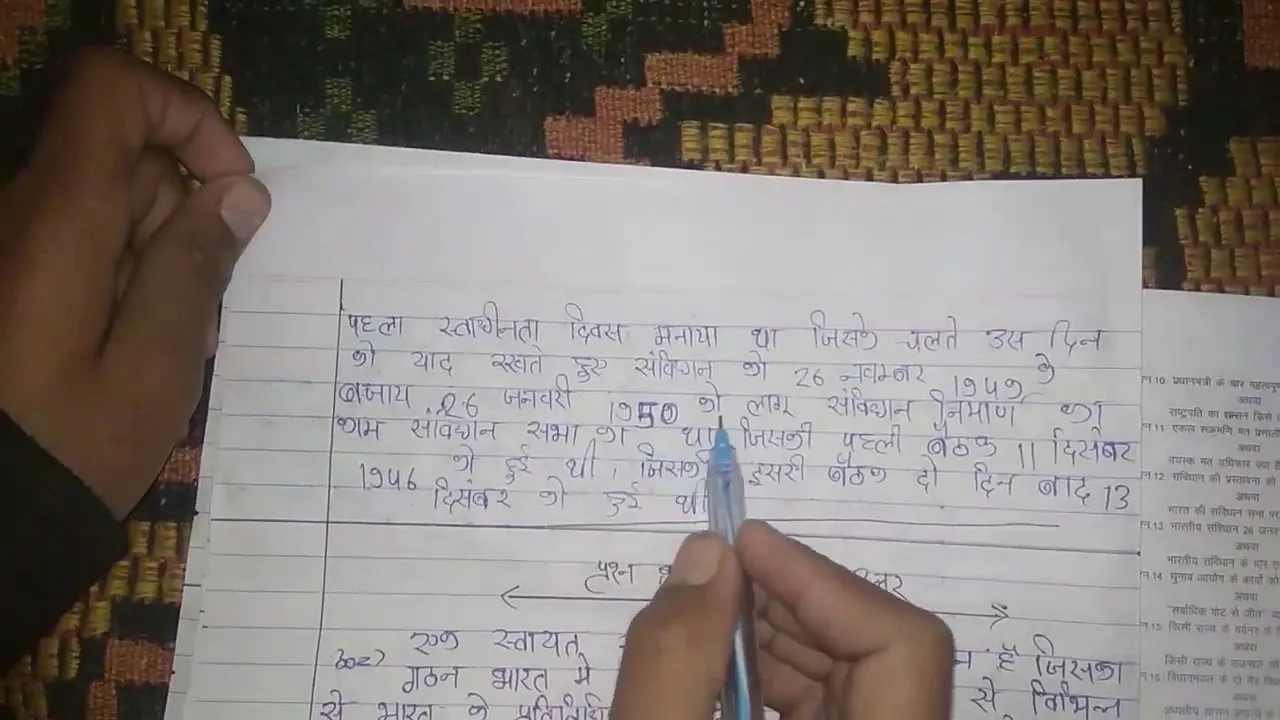 पहला स्वाधीनता दिवस मनाया था जिसके चलते उस दिन
को याद रखते हुए संविधान को 26 नवम्बर 1949 के
बजाय 26 जनवरी 1950 को लागू संविधान निर्माण का
काम संविधान सभा का था जिसकी पहली बैठक 11 दिसंबर
1946 को हुई थी, जिसकी दूसरी बैठक दो दिन बाद 13
दिसंबर को हुई थी
प्रश्न
उ०८) एक स्वायत्त
है जिसका
गठन भारत में
से विभिन्न
से भारत के
न.10 प्रधानमंत्री के चार
अथवा
राष्ट्रपति का शासन किसे
न.11 एकल संक्रमणि मत
वयस्क मत अधिकार क्या
न.12 संविधान की प्रस्तावना को
अथवा
भारत की संविधान सभा पर
न.13 भारतीय संविधान 26
अथवा
भारतीय संविधान के चार
न.14 चुनाव आयोग के कार्यो को
अथवा
"सर्वाधिक वोट से जीत"
न.15 किसी राज्य के
अथवा
किसी राज्य के राजपाल की
न.16 विधानमंडल के दो
अथवा